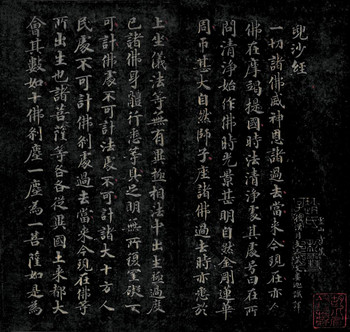 兜沙經
一切諸佛威神恩諸過去當來今現在亦尒
佛在摩竭提國時法清淨處其處号曰在所
問清淨始作佛時光景甚明自然金剛蓮華
周帀甚大自然師子座諸佛過去時亦悉於
上坐儀法等無有異極相法中出生極過度
已諸佛身體行悉等具足明無所復罣礙不
可計佛處不可計法處不可計諸大十方人
民處不可計佛刹處過去當來今現在佛等
所出生也諸菩薩等各各從異國土來都大
會其數如十佛刹塵一塵為一菩薩如是為